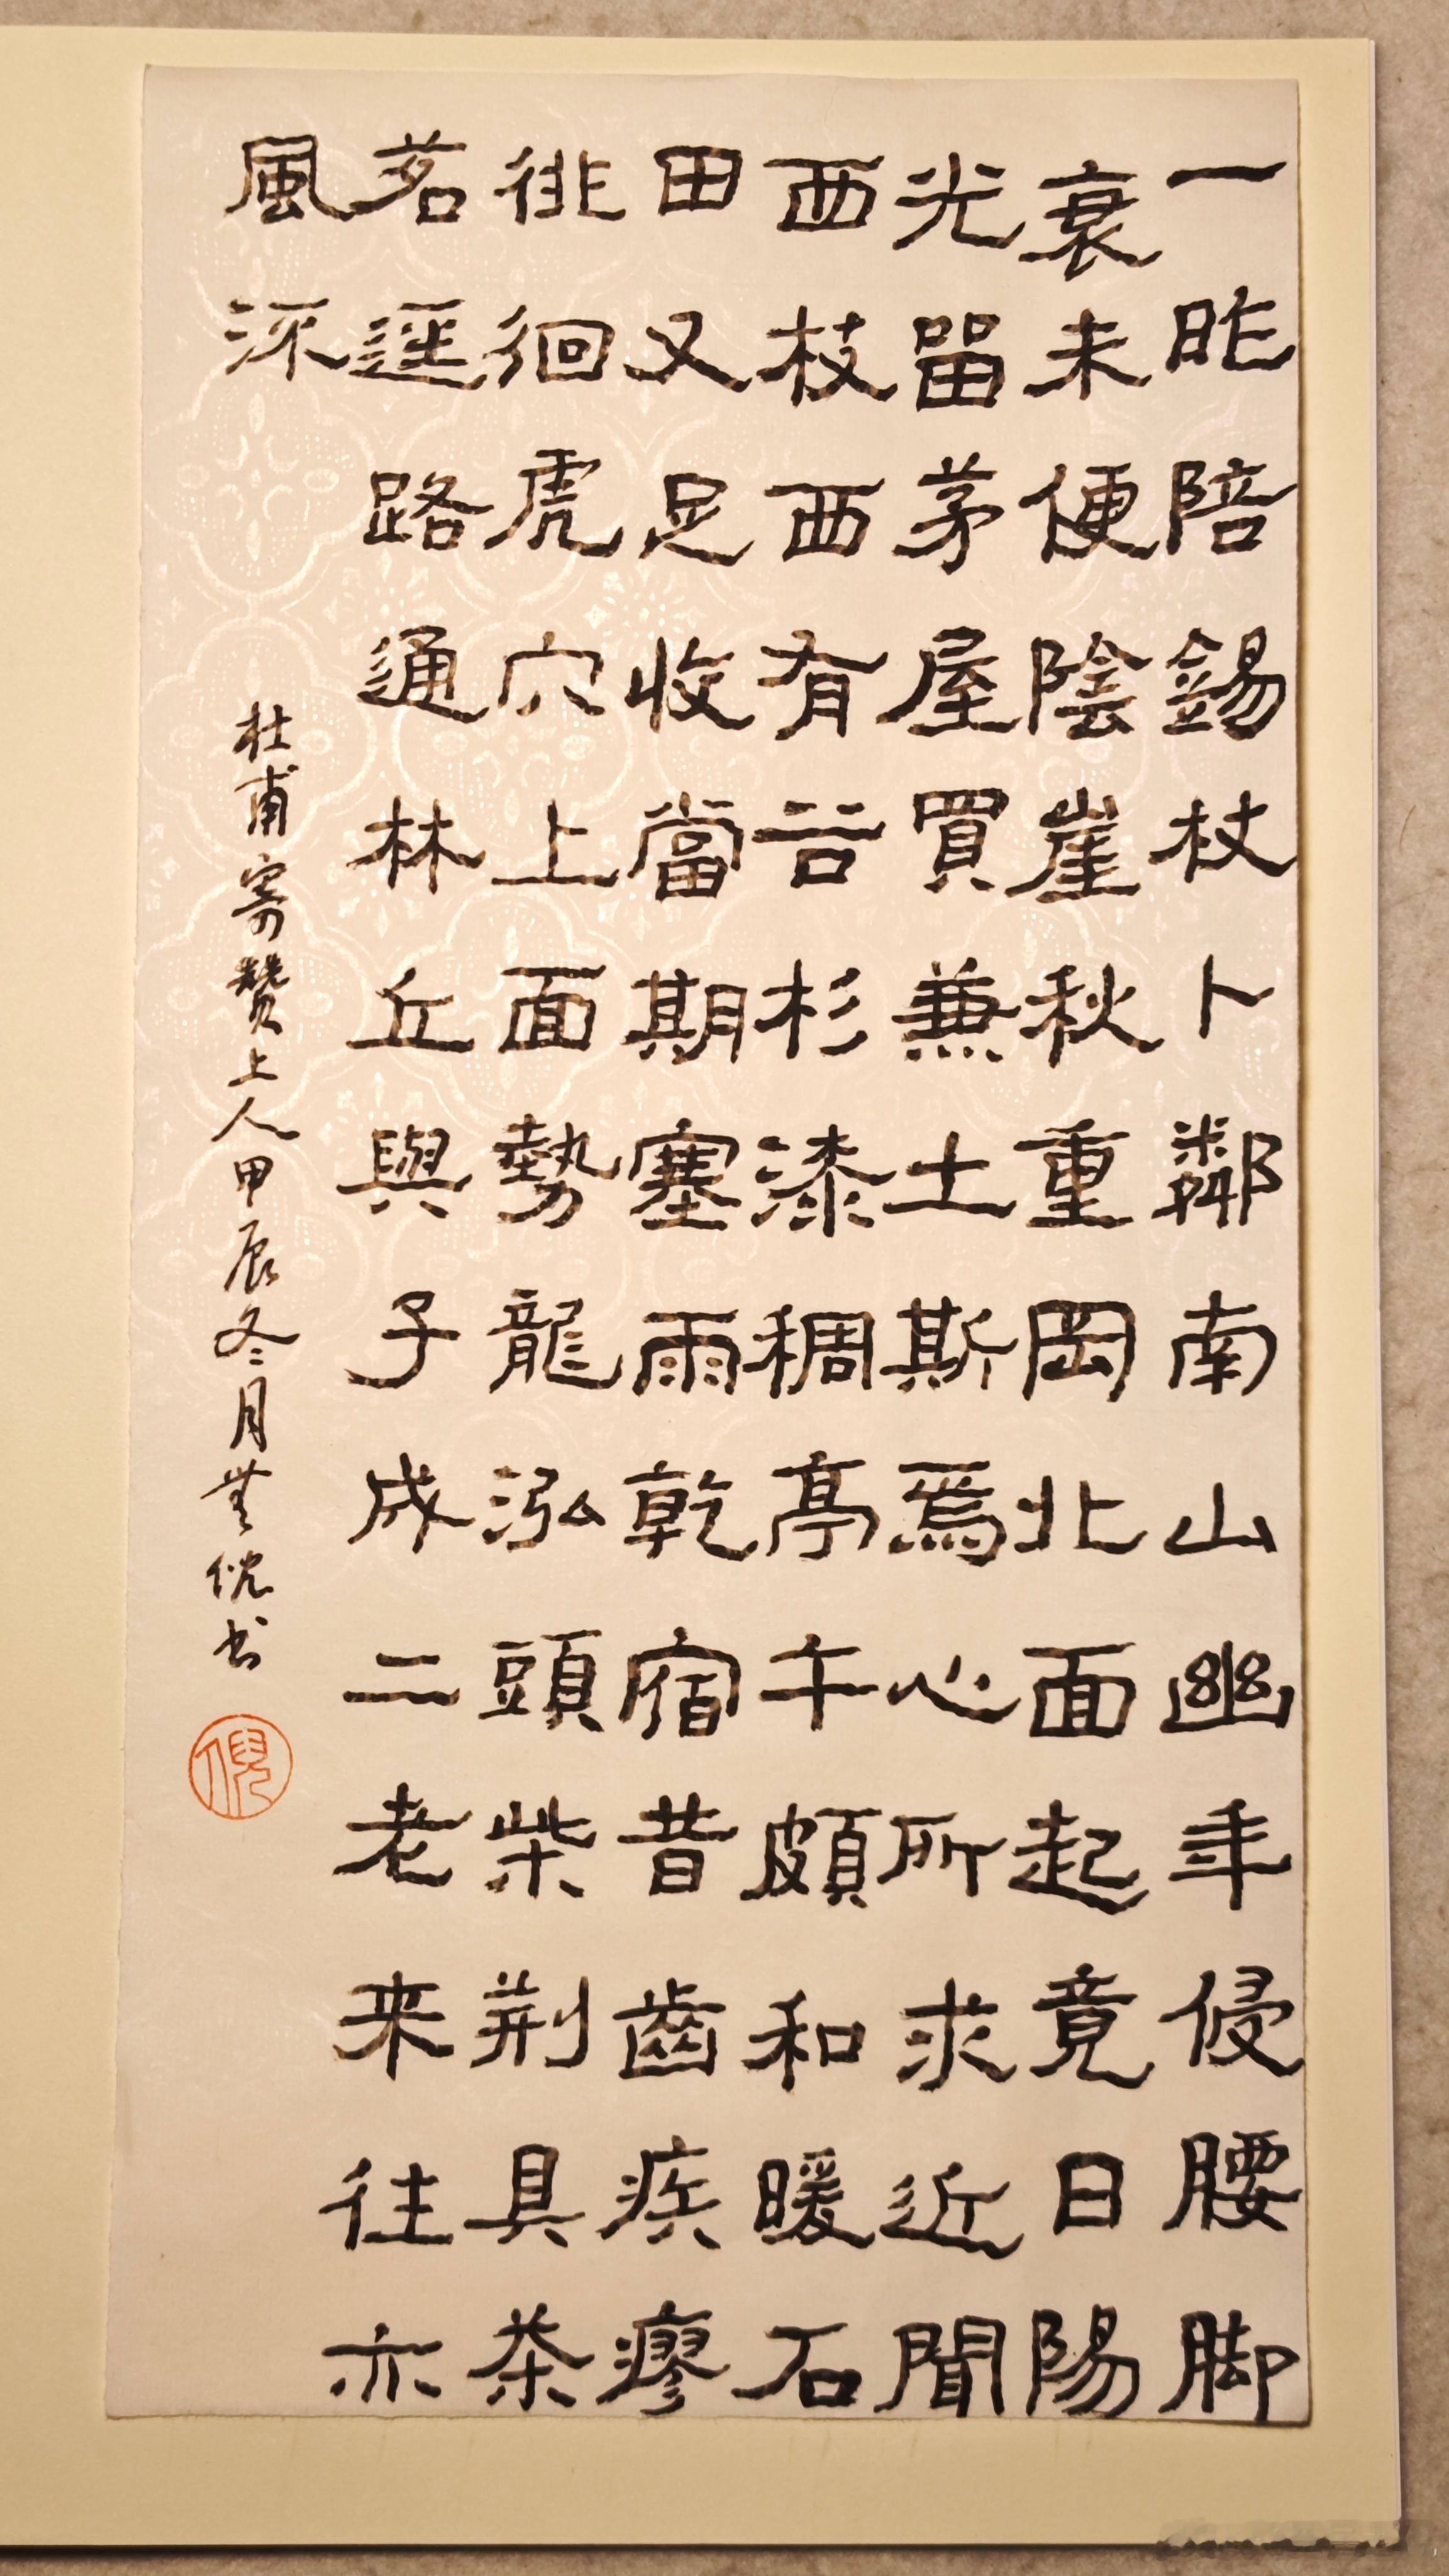 一昨陪錫杖卜鄰南山幽年侵腰脚
衰未便陰崖秋重岡北面起竟日陽
光留茅屋買兼土斯焉心所求近聞
西枝西有谷杉漆稠亭午頗和暖石
田又足收當期塞雨乾宿昔齒疾瘳
徘徊虎穴上面勢龍泓頭柴荊具茶
茗逕路通林丘與子成二老来往亦
風流
杜甫寄贊上人甲辰冬月無倪书
倪